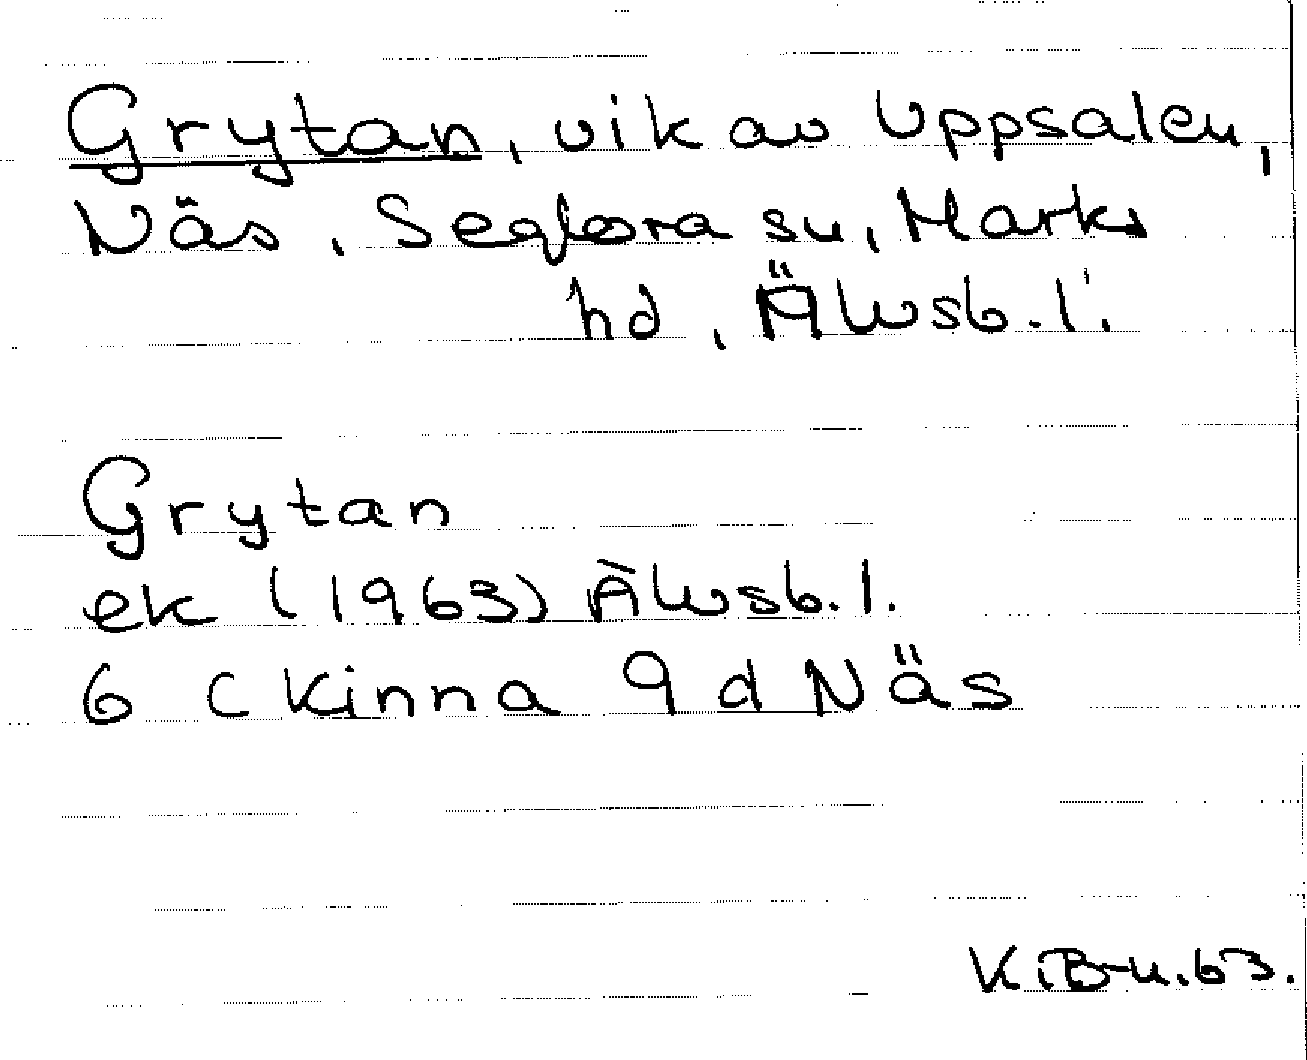 Grytan, vik av Uppsalen,
Näs, Seglora sn, Marks
hd, Älvsb. l.
Grytan
ek (1963) Älvsb. l.
6 C Kinna 9 d Näs
K.B-n. 63.